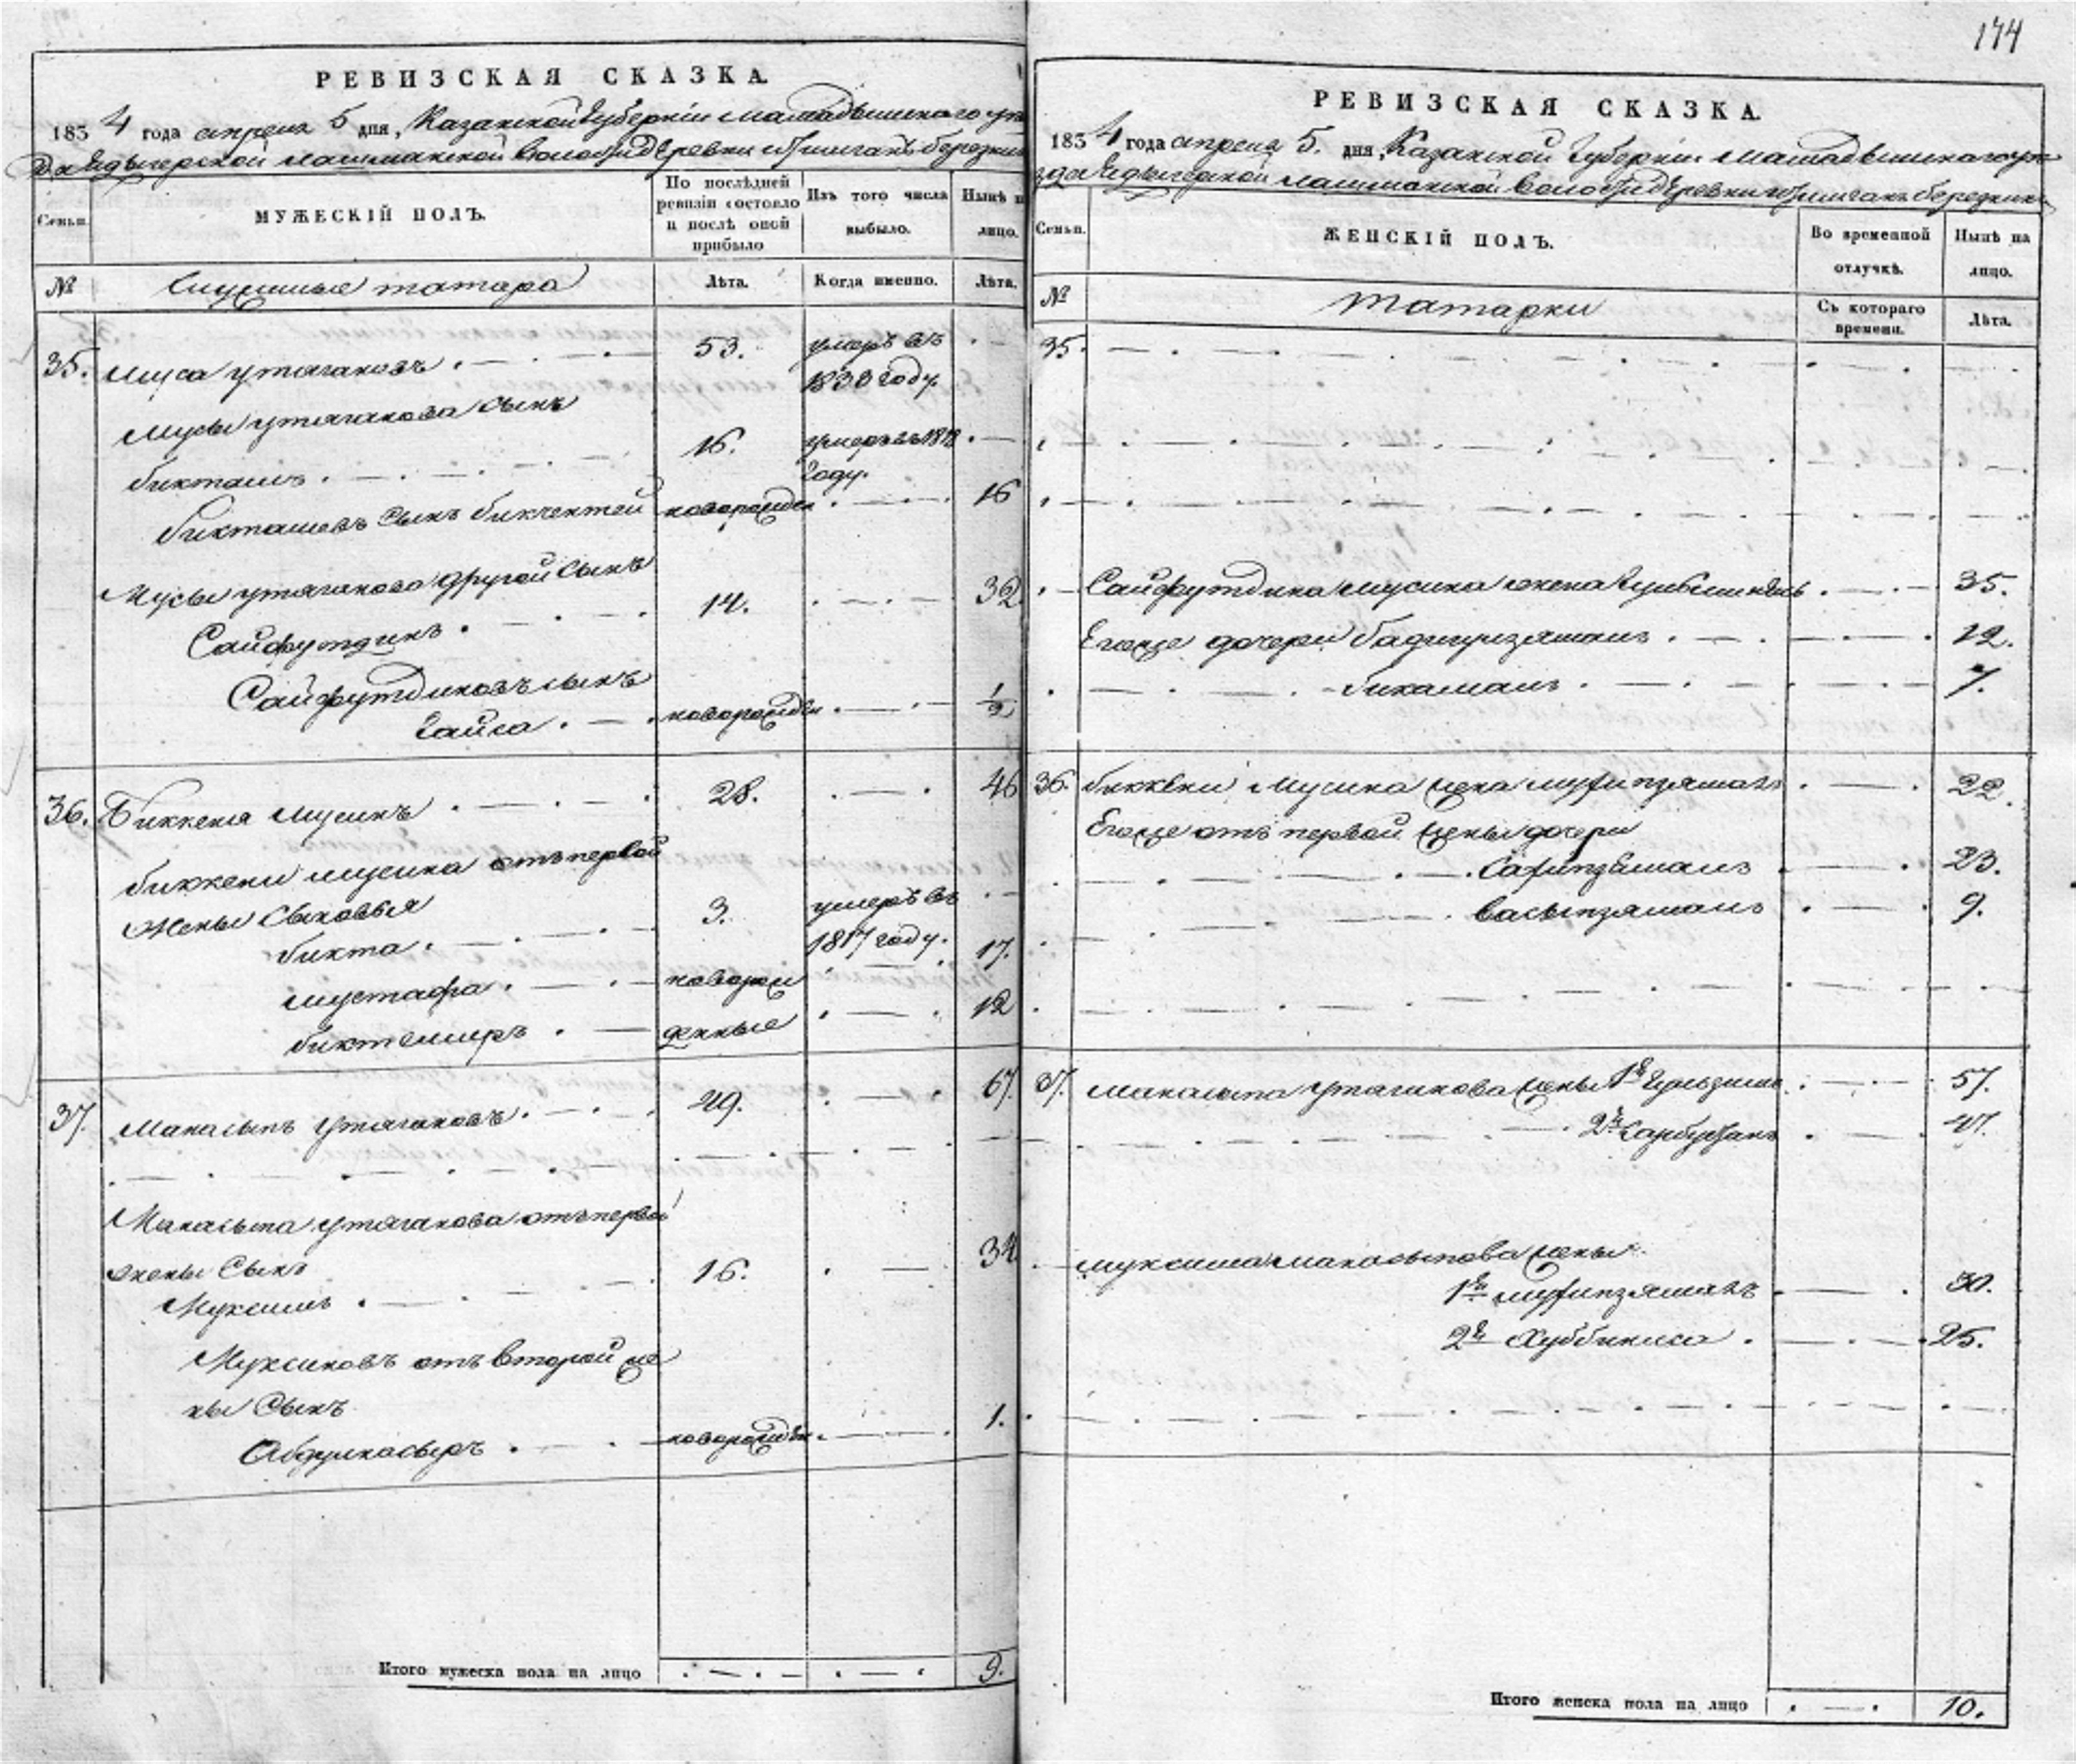 174
РЕВИЗСКАЯ СКАЗКА.
1834 года апреля 5 дня, Казанской Губернiи Мамадышскаго уез
да Едыгерской лашманской волости деревни
Семьи.
МУЖЕСКIЙ ПОЛЪ.
По послѣдней ревизiи состояло и послѣ оной прибыло
Изъ того числа выбыло.
Нынѣ на лицо.
№
Служилые татара
Лѣта.
Когда именно.
Лѣта.
35. Муса Утягановъ 53. умеръ въ 1830 году.
Мусы Утяганова сынъ
бикташъ 16. умеръ въ году.
бикташевъ сынъ бикчентей новорожден 16
Мусы Утяганова другой сынъ
Сайфутдинъ 14. 32
Сайфутдиновъ сынъ
Гайса новорожден 1/2
36. Биккеня Мусинъ 28. 46
биккени Мусина отъ первой
жены сыновья
бикта 3. умеръ въ 1817 году.
мустафа новорож 17.
биктемиръ денные 12
37. Манасыпъ Утягановъ 49. 67.
Манасыпа Утяганова отъ первой
жены сынъ
Муксинъ 16. 34
Муксиновъ отъ второй же
ны сынъ
Абдулнасыръ новорожден 1.
Итого мужеска пола на лицо 9.
РЕВИЗСКАЯ СКАЗКА.
1834 года апреля 5. дня, Казанской Губернiи Мамадышскаго уе
зда Едыгерской лашманской волости деревни
Семьи.
ЖЕНСКIЙ ПОЛЪ.
Во временной отлучкѣ.
Нынѣ на лицо.
№
Татарки
Съ котораго времени.
Лѣта.
35.
Сайфутдина Мусина жена 35.
Егоже дочери бадигизямалъ 12.
бикамалъ 7.
36. биккени Мусина жена 22.
Егоже отъ первой жены дочери
23.
9.
37. Манасыпа Утяганова жены 1я 57.
2я 47.
Муксина Манасыпова жены
1я 30.
2я Хуббиниса 25.
Итого женска пола на лицо 10.